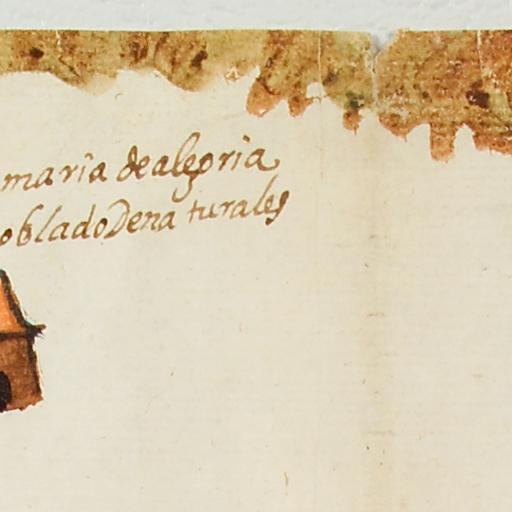 maria de alegria
oblado De na turales